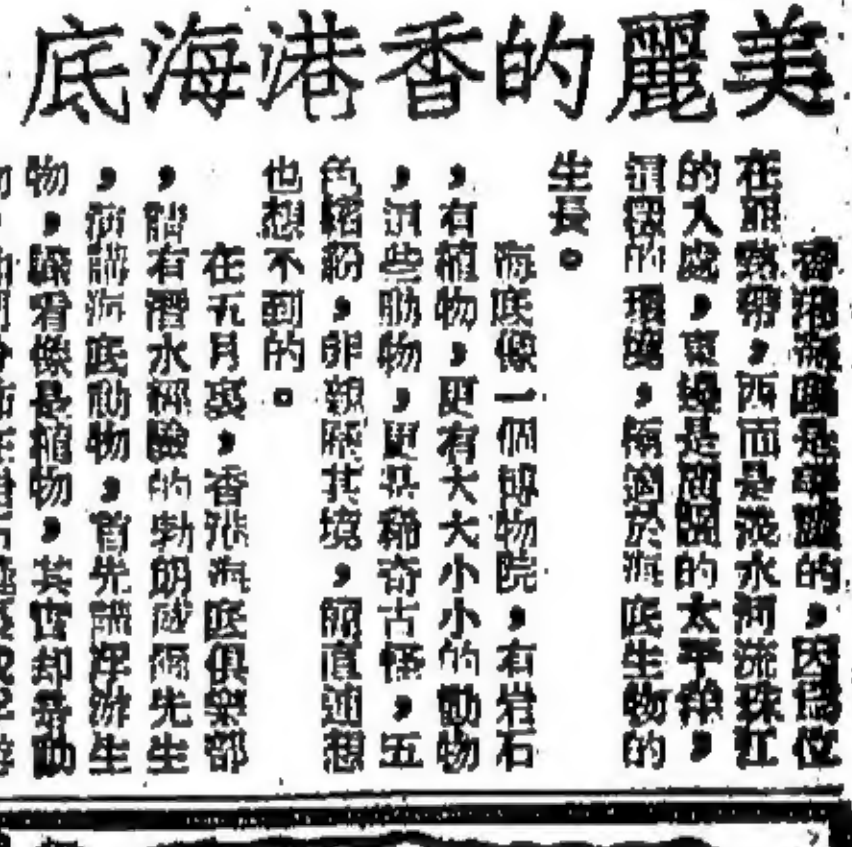 美麗的香港海底
香港海底是美麗的，因爲位
在亞熱帶，西面是淡水河流珠江
的入處，東邊是廣闊的太平洋，
這樣的環境，極適於海底生物的
生長。
海底像一個博物院，有岩石
，有植物，更有大大小小的動物
，這些動物，更具稀奇古怪，五
色繽紛，非親歷其境，簡直連想
也想不到的。
在五月裏，香港海底俱樂部
，請有潛水經驗的勃朗先生
，演講海底動物，首先講浮游生
物，驟看像是植物，其實却是動